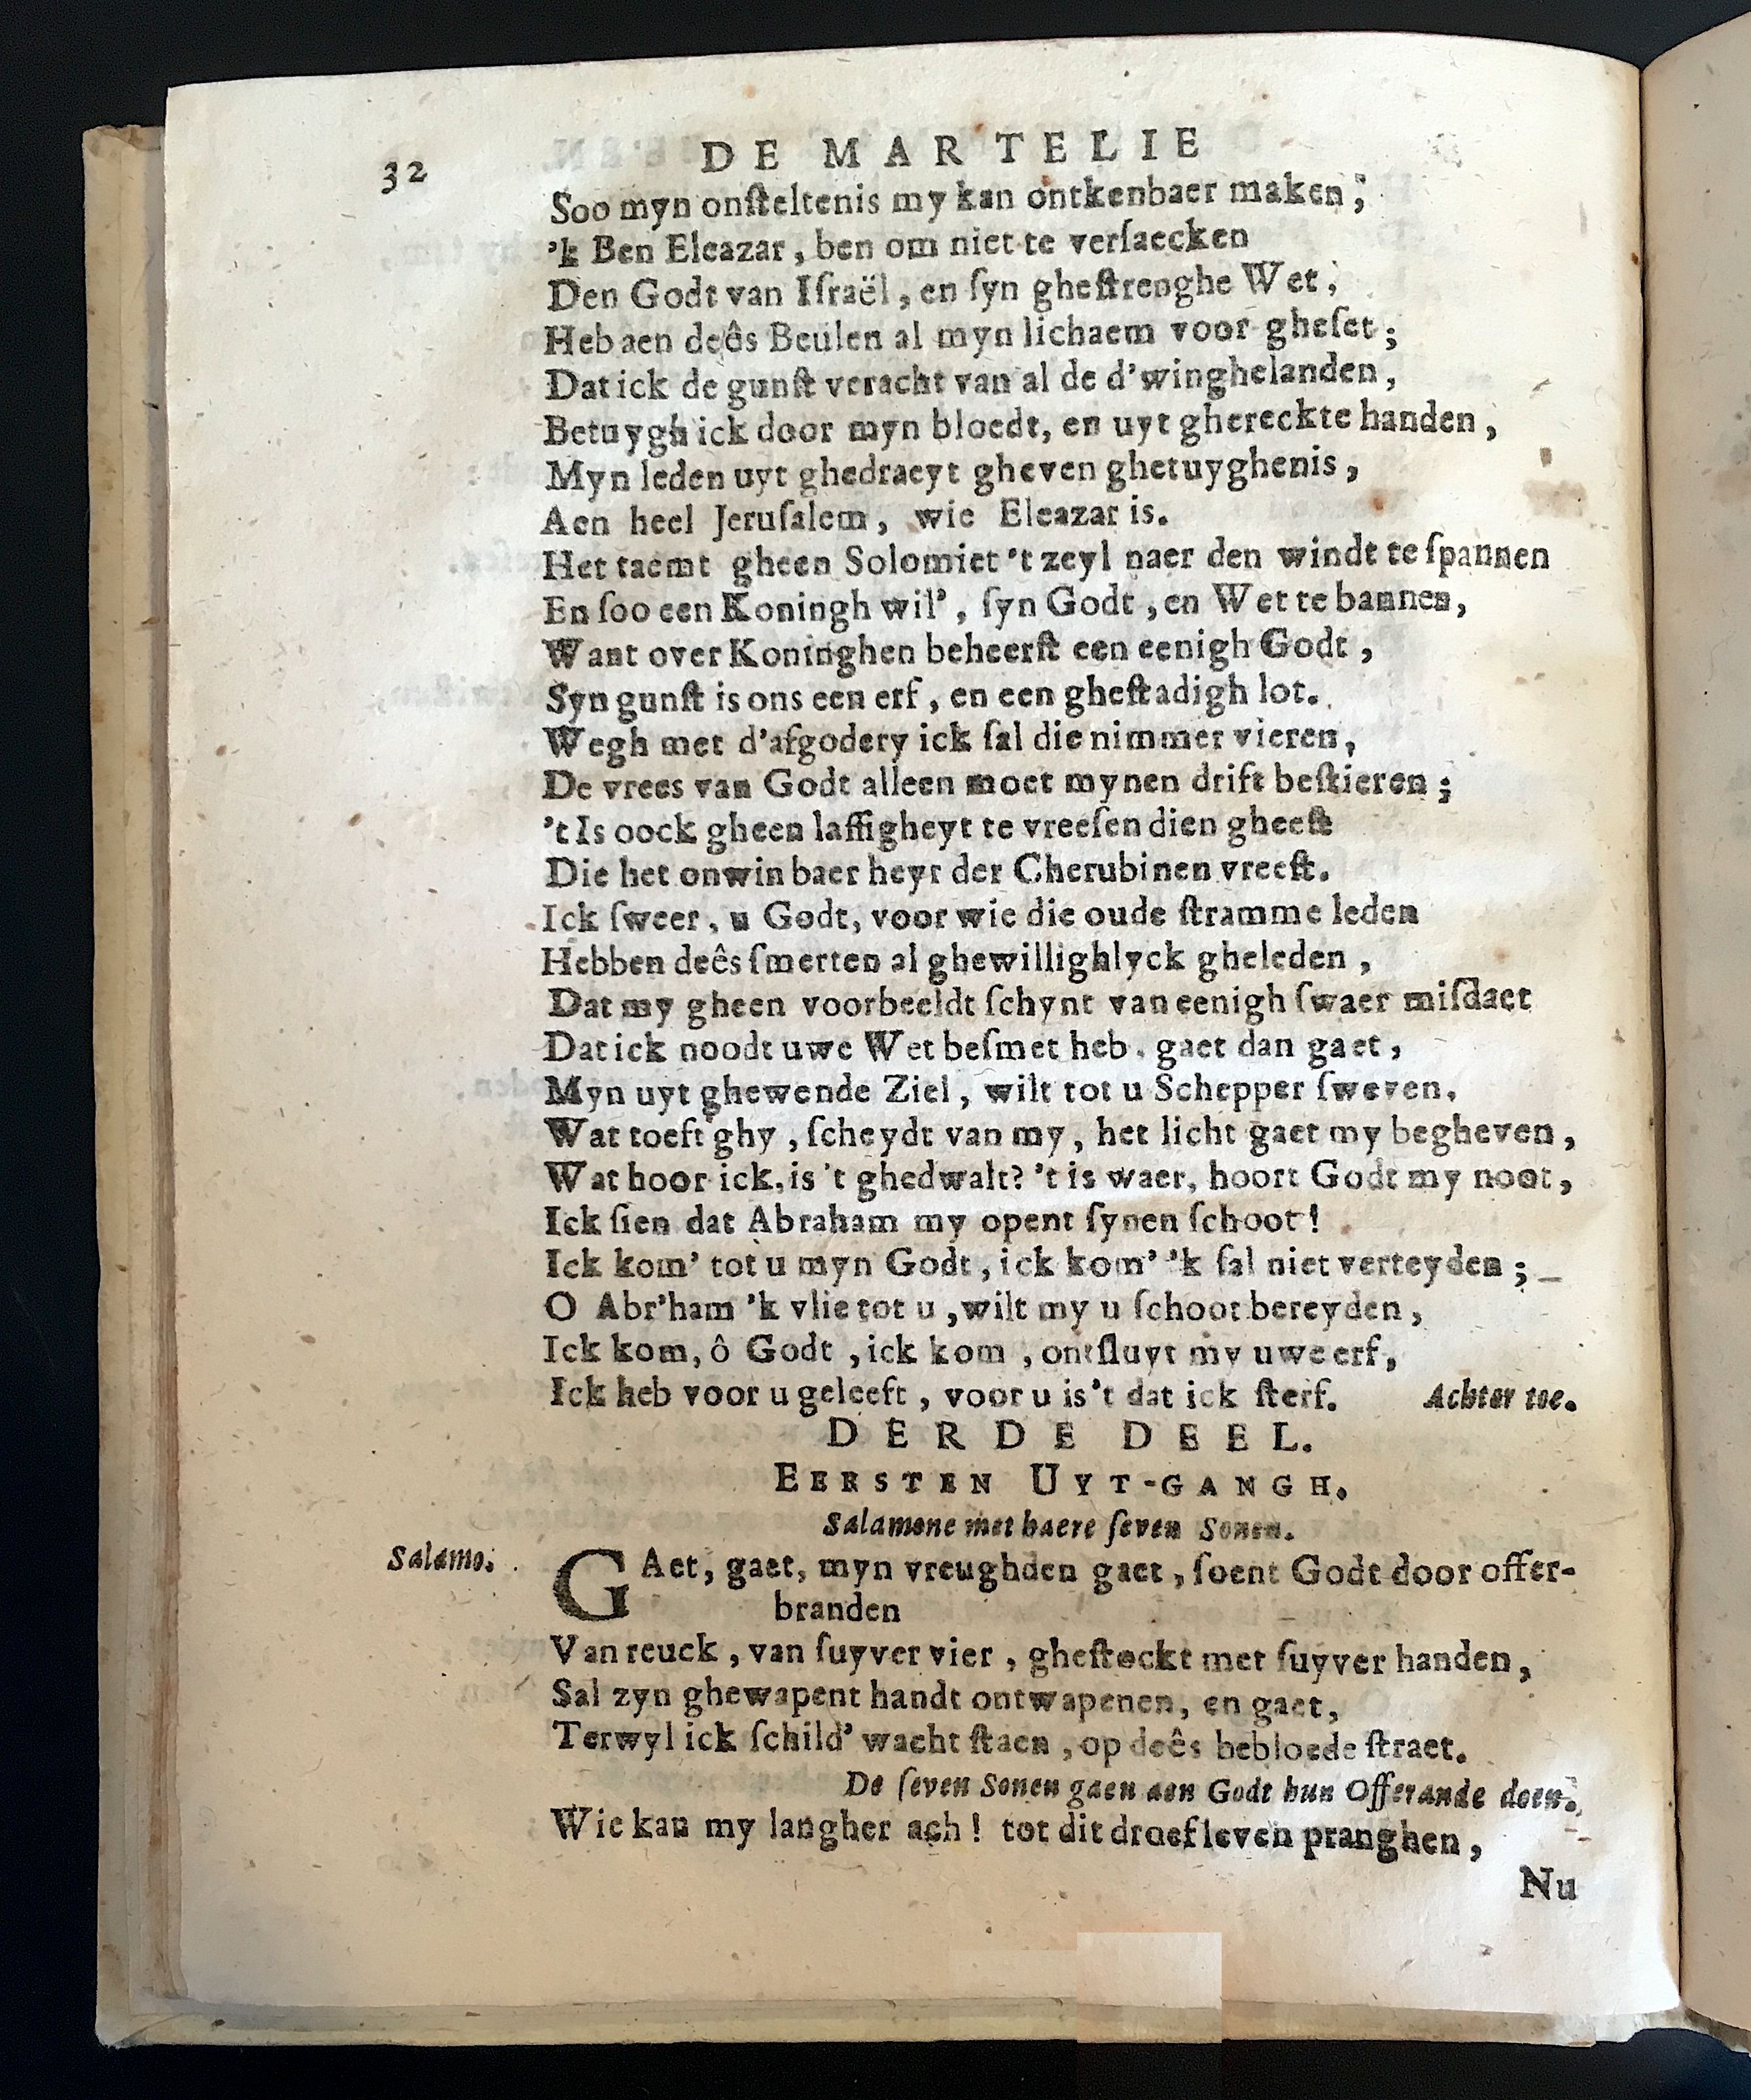 32 DE MARTELIE
Soo myn onſteltenis my kan ontkenbaer maken;
'k Ben Eleazar, ben om niet te verſaecken
Den Godt van Iſraël, en ſyn gheſtrenghe Wet,
Heb aen deês Beulen al myn lichaem voor gheſet;
Dat ick de gunſt veracht van al de d'winghelanden,
Betuygh ick door myn bloedt, en uyt ghereckte handen,
Myn leden uyt ghedraeyt gheven ghetuyghenis,
Aen heel Jeruſalem, wie Eleazar is.
Het taemt gheen Solomiet 't zeyl naer den windt te ſpannen
En ſoo een Koningh wil', ſyn Godt, en Wet te bannen,
Want over Koninghen beheerſt een eenigh Godt,
Syn gunſt is ons een erf, en een gheſtadigh lot.
Wegh met d'afgodery ick ſal die nimmer vieren,
De vrees van Godt alleen moet mynen drift beſtieren;
't Is oock gheen laffigheyt te vreeſen dien gheeſt
Die het onwinbaer heyr der Cherubinen vreeſt.
Ick ſweer, u Godt, voor wie die oude ſtramme leden
Hebben deês ſmerten al ghewillighlyck gheleden,
Dat my gheen voorbeeldt ſchynt van eenigh ſwaer miſdaet
Dat ick noodt uwe Wet beſmet heb, gaet dan gaet,
Myn uyt ghewende Ziel, wilt tot u Schepper ſweven,
Wat toeft ghy, ſcheydt van my, het licht gaet my begheven,
Wat hoor ick, is 't ghedwalt? 't is waer, hoort Godt my noot,
Ick ſien dat Abraham my opent ſynen ſchoot!
Ick kom' tot u myn Godt, ick kom' 'k ſal niet verteyden;
O Abr'ham 'k vlie tot u, wilt my u ſchoot bereyden,
Ick kom, ô Godt, ick kom, ontſluyt my uwe erf,
Ick heb voor u geleeft, voor u is't dat ick ſterf. Achter toe.
DERDE DEEL.
EERSTEN UYT-GANGH.
Salamone met haere ſeven Sonen.
Salamo. GAet, gaet, myn vreughden gaet, ſoent Godt door offer-
branden
Van reuck, van ſuyver vier, gheſtockt met ſuyver handen,
Sal zyn ghewapent handt ontwapenen, en gaet,
Terwyl ick ſchild' wacht ſtaen, op deês bebloede ſtraet.
De ſeven Sonen gaen aen Godt hun Offerande doen.
Wie kan my langher ach! tot dit droef leven pranghen,
Nu